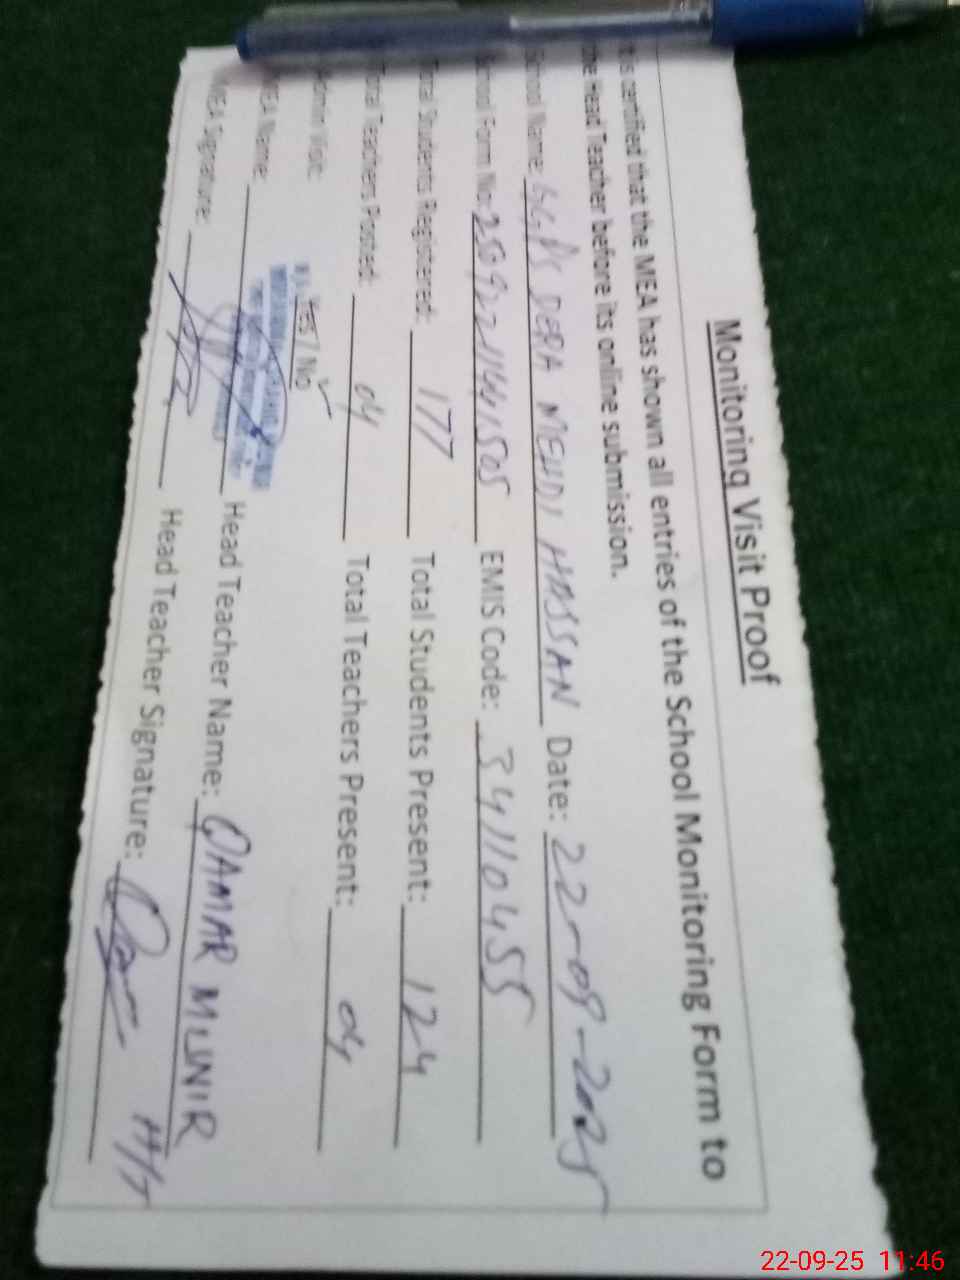 Monitoring Visit Proof
It is certified that the MEA has shown all entries of the School Monitoring Form to
the Head Teacher before its online submission.
School Name: GGPS DERA MEHDI HASSAN Date: 22-09-2025
School Form No: EMIS Code: 34110455
Total Students Registered: 177 Total Students Present: 124
Total Teachers Posted: 04 Total Teachers Present: 04
Admin Visit: Yes / No ✓
MEA Name: Head Teacher Name: QAMAR MUNIR
MEA Signature: Head Teacher Signature: H/T
22-09-25 11:46